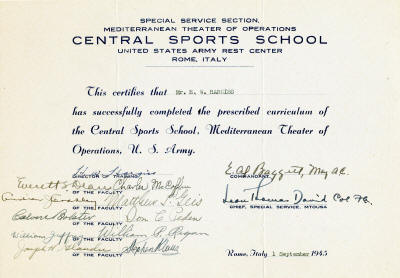 SPECIAL SERVICE SECTION,
MEDITERRANEAN THEATER OF OPERATIONS
CENTRAL SPORTS SCHOOL
UNITED STATES ARMY REST CENTER
ROME, ITALY
This certifies that Mr. E. W. HARKISS
has successfully completed the prescribed curriculum of
the Central Sports School, Mediterranean Theater of
Operations, U. S. Army.
DIRECTOR OF TRAINING
Everett S. Dean Charles McCoffrey
OF THE FACULTY
Matthew J. Geis
OF THE FACULTY
Don C. Peden
OF THE FACULTY
William
OF THE FACULTY
Joseph
OF THE FACULTY
Stephen
E. A. Baggett, Maj AC.
COMMANDANT
Leon Thomas David Col FA.
CHIEF, SPECIAL SERVICE, MTOUSA
Rome, Italy 1 September 1945